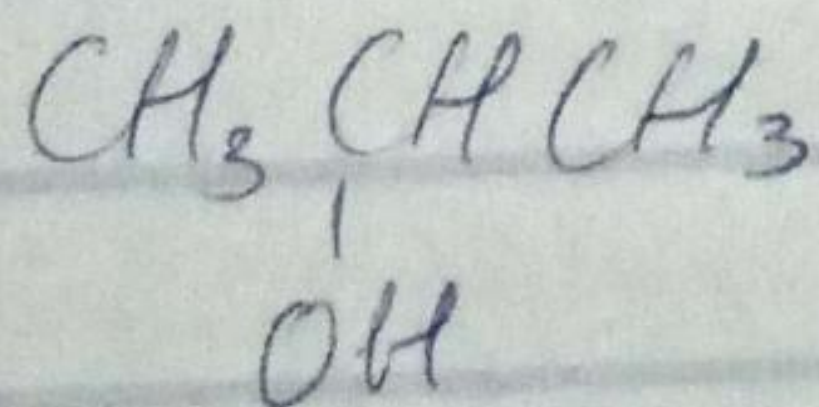 CH₃CHCH₃
|
OH